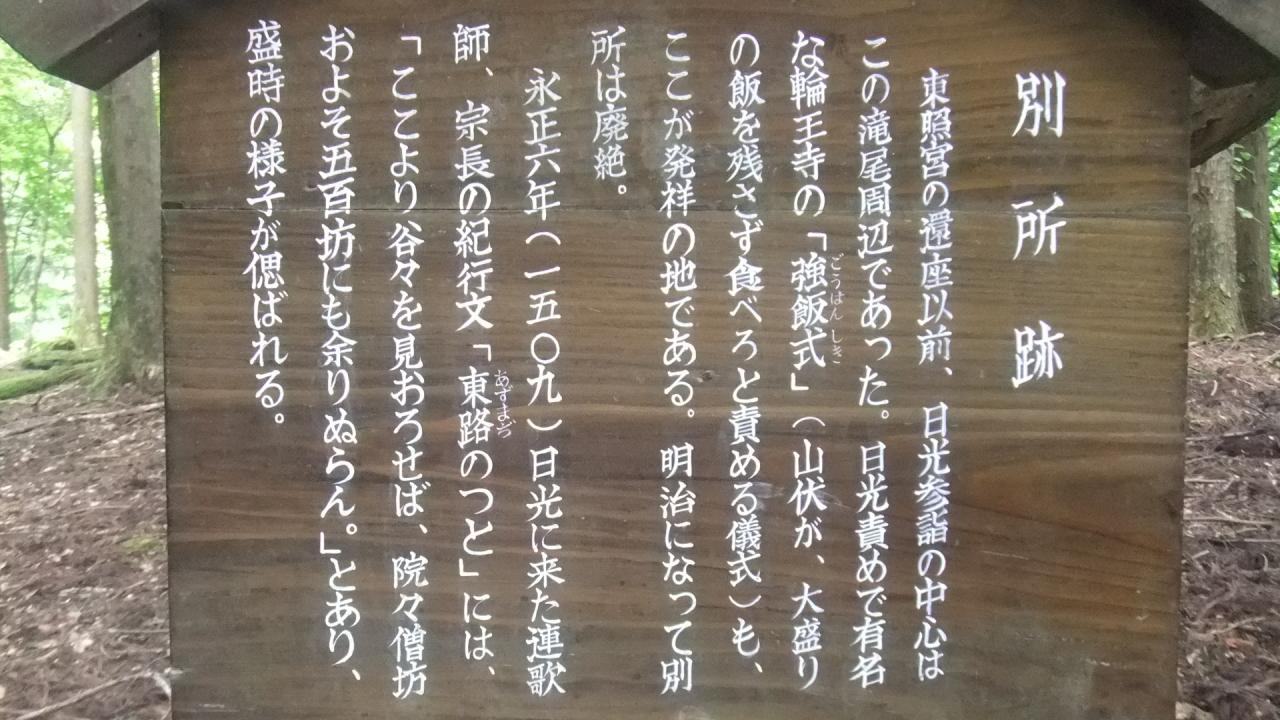 別所跡
東照宮の還座以前、日光参詣の中心は
この滝尾周辺であった。日光責めで有名
な輪王寺の「強飯式」（山伏が、大盛り
ごうはんしき
の飯を残さず食べろと責める儀式）も、
ここが発祥の地である。明治になって別
所は廃絶。
永正六年（一五〇九）日光に来た連歌
師、宗長の紀行文「東路のつと」には、
あずまぢ
「ここより谷々を見おろせば、院々僧坊
およそ五百坊にも余りぬらん。」とあり、
盛時の様子が偲ばれる。